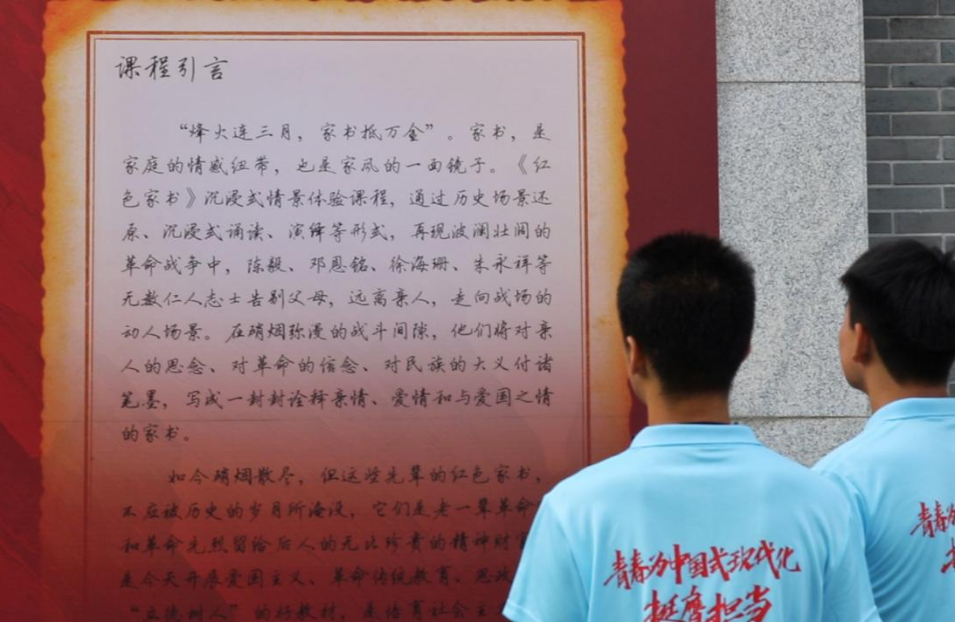 课程引言
“烽火连三月，家书抵万金”。家书，是
家庭的情感纽带，也是家风的一面镜子。《红
色家书》沉浸式情景体验课程，通过历史场景还
原、沉浸式诵读、演绎等形式，再现波澜壮阔的
革命战争中，陈毅、邓恩铭、徐海珊、朱永祥等
无数仁人志士告别父母，远离亲人，走向战场的
动人场景。在硝烟弥漫的战斗间隙，他们将对亲
人的思念、对革命的信念、对民族的大义付诸
笔墨，写成一封封诠释亲情、爱情和与爱国之情
的家书。
如今硝烟散尽，但这些先辈的红色家书，
不应被历史的岁月所淹没，它们是老一辈革命
和革命先烈留给后人的无比珍贵的精神财
是今天开展爱国主义、革命传统教育、思政
“立德树人”的好教材，是培育社会主
青春为中国式现代化
挺膺担当
青春为